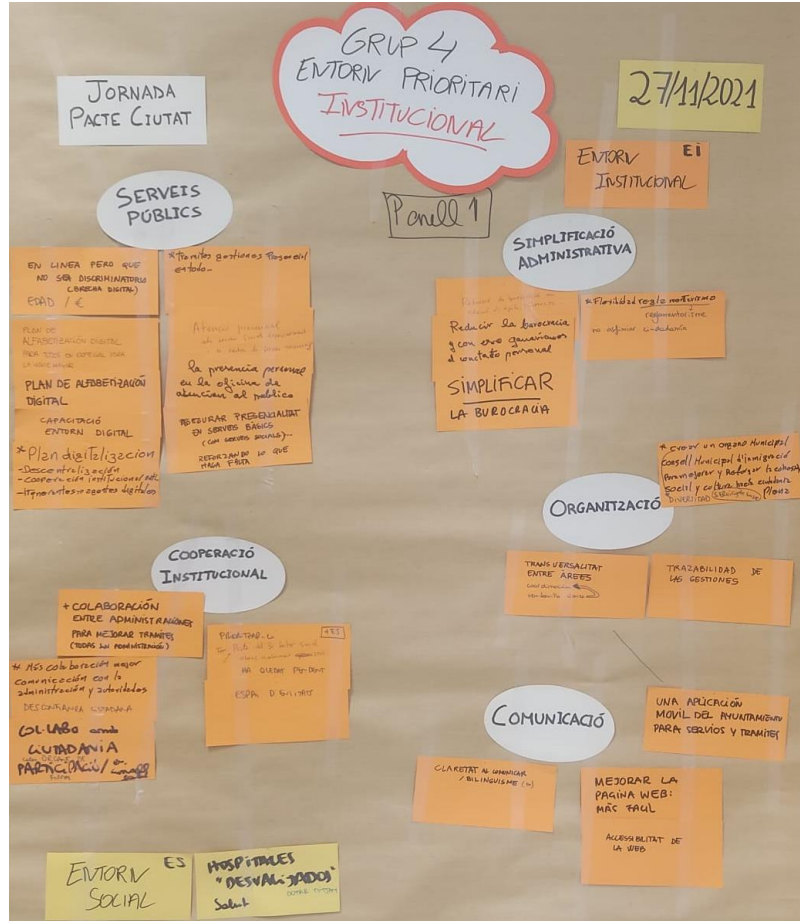 GRUP 4
ENTORN PRIORITARI
INSTITUCIONAL
JORNADA
PACTE CIUTAT
27/11/2021
ENTORN EI
INSTITUCIONAL
Panell 1
SERVEIS
PÚBLICS
EN LINEA PERO QUE
NO SEA DISCRIMINATORIO
(BRECHA DIGITAL)
EDAD / €
PLAN DE
ALFABETIZACIÓN DIGITAL
PARA TODOS EN ESPECIAL PARA
LA GENTE MAYOR
PLAN DE ALFABETIZACIÓN
DIGITAL
CAPACITACIÓ
ENTORN DIGITAL
* Plan digitalizacion
- Descentralización
- cooperación institucional
- Itinerantes - agentes digitales
* Tramites gestiones Presencial
en todo
Atenció presencial
la presencia personal
en la oficina de
atencion al publico
ASEGURAR PRESENCIALITAT
EN SERVEIS BÀSICS
(COM SERVEIS SOCIALS)...
REFORZANDO LO QUE
HAGA FALTA
SIMPLIFICACIÓ
ADMINISTRATIVA
Reducir la burocracia
y con eso ganariamos
el contacto personal
SIMPLIFICAR
LA BUROCRACIA
* Flexibilidad
reglamentarisme
no asfixiar ciudadanía
ORGANITZACIÓ
* crear un organo Municipal
Consell Municipal d'immigració
Para mejorar y Reforçar la cohesión
Social y cultura
DIVERSIDAD
TRANSVERSALITAT
ENTRE AREES
coordinación
TRAZABILIDAD DE
LAS GESTIONES
COOPERACIÓ
INSTITUCIONAL
+ COLABORACIÓN
ENTRE ADMINISTRACIONES
PARA MEJORAR TRAMITES
(TODAS LAS ADMINISTRACIÓ)
* Más colaboración mejor
comunicación con la
administración y autoridades
DESCONFIANZA CIUTADANA
COL·LABO amb
CIUTADANIA
PARTICIPACIÓ/
PRIORITZAR
HA QUEDAT PENDENT
ESPAI DIGNITATS
COMUNICACIÓ
UNA APLICACIÓN
MOVIL DEL AYUNTAMIENTO
PARA SERVIOS Y TRAMITES
CLARETAT AL COMUNICAR
/ BILINGUISME
MEJORAR LA
PAGINA WEB:
MÁS FACIL
ACCESSIBILITAT DE
LA WEB
ENTORN ES
SOCIAL
HOSPITALES
"DESVALIJADOS"
Salut